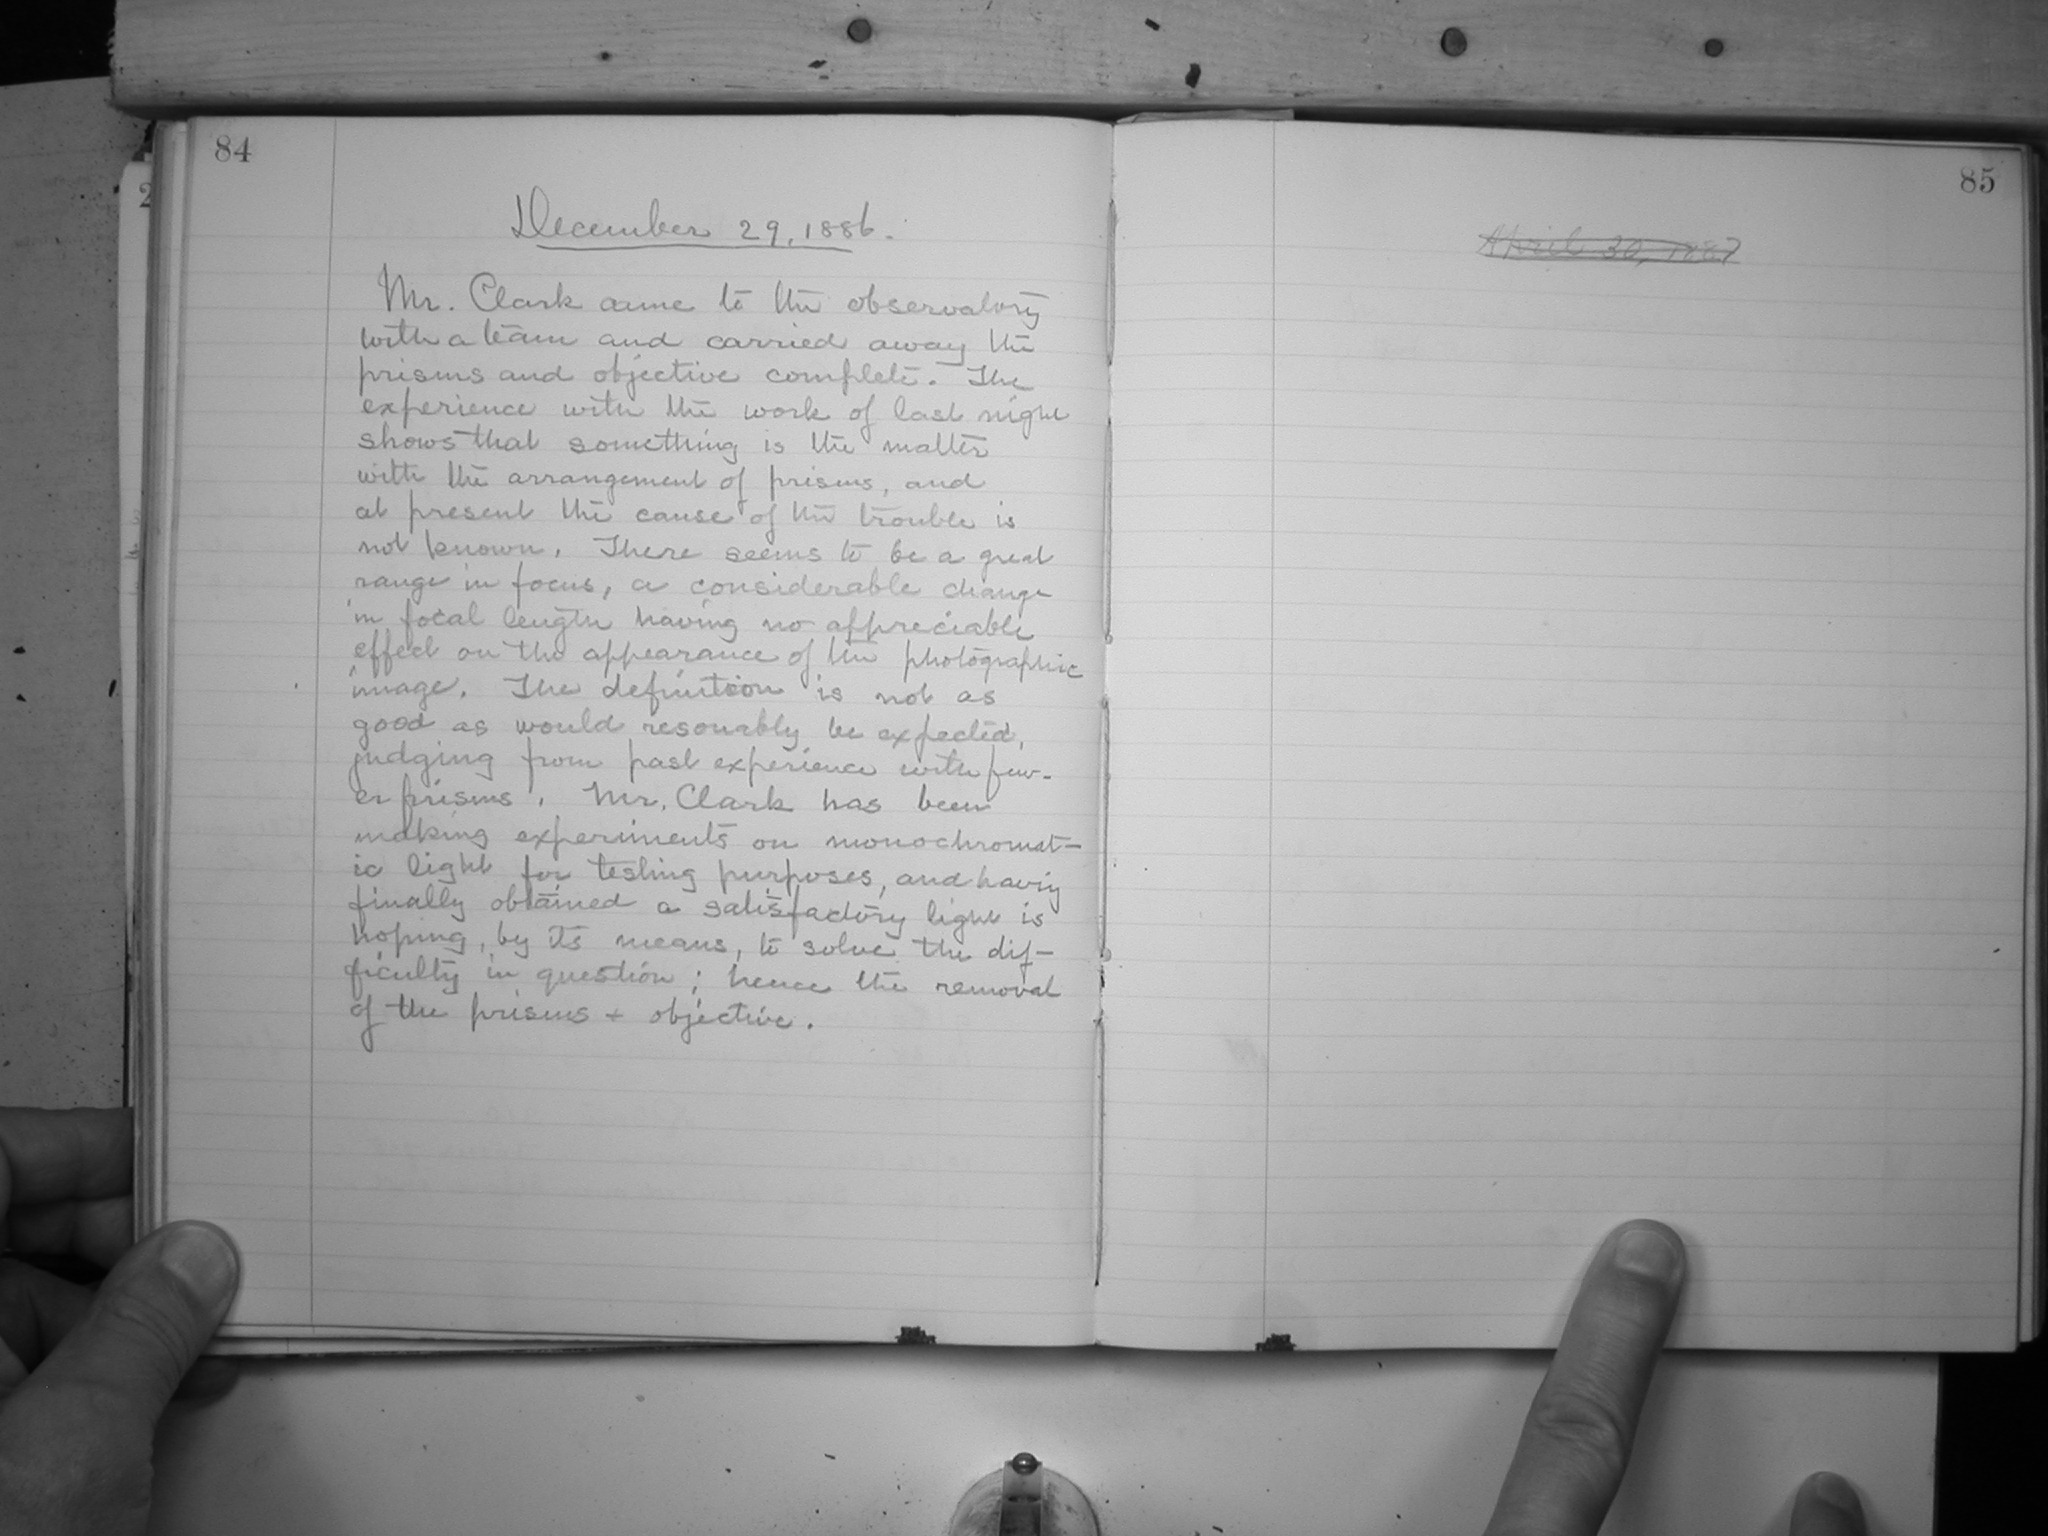 84
December 29, 1886.
Mr. Clark came to the observatory
with a team and carried away the
prisms and objective complete. The
experience with the work of last night
shows that something is the matter
with the arrangement of prisms, and
at present the cause of the trouble is
not known. There seems to be a great
range in focus, a considerable change
in focal length having no appreciable
effect on the appearance of the photographic
image. The definition is not as
good as would resonably be expected,
judging from past experience with few-
er prisms. Mr. Clark has been
making experiments on monochromat-
ic light for testing purposes, and having
finally obtained a satisfactory light is
hoping, by its means, to solve the dif-
ficulty in question; hence the removal
of the prisms + objective.
85
April 30, 1887
2